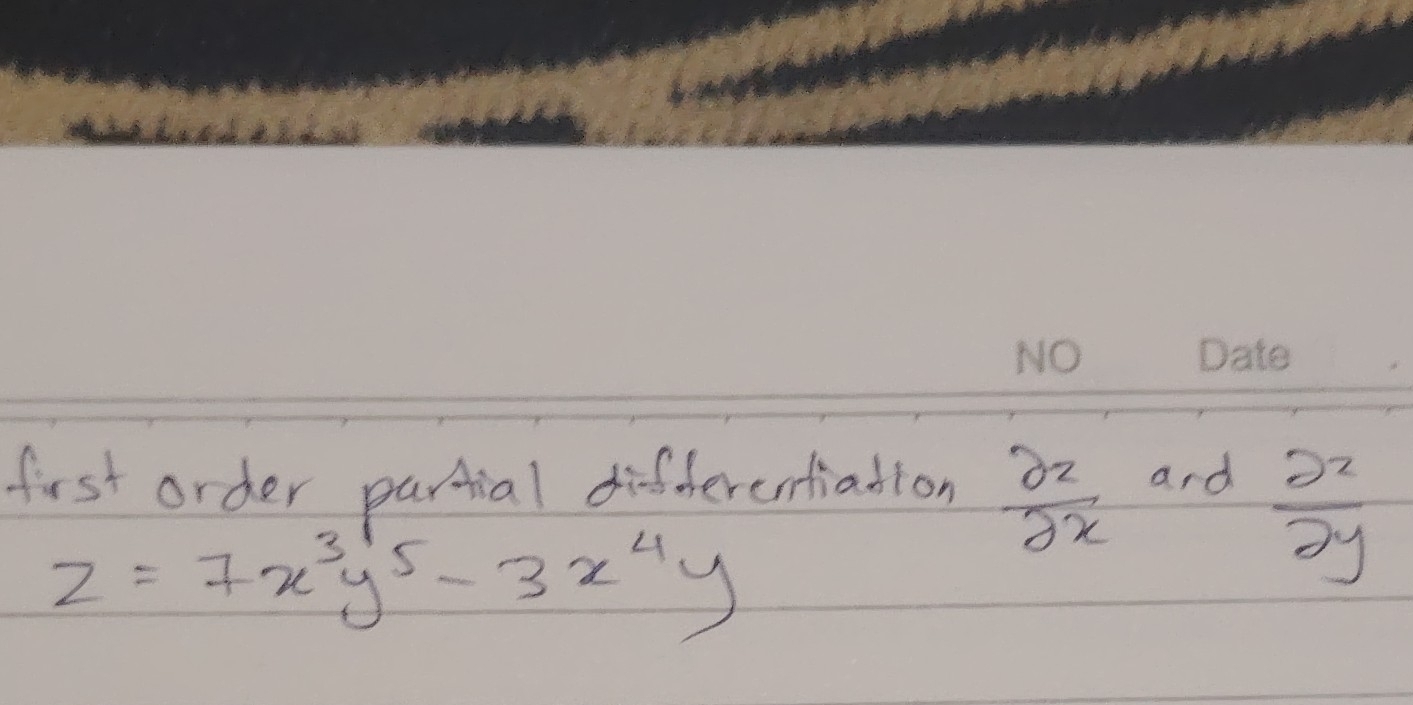 NO Date
first order partial differentiation ∂z/∂x and ∂z/∂y
z = 7x³y⁵ - 3x⁴y